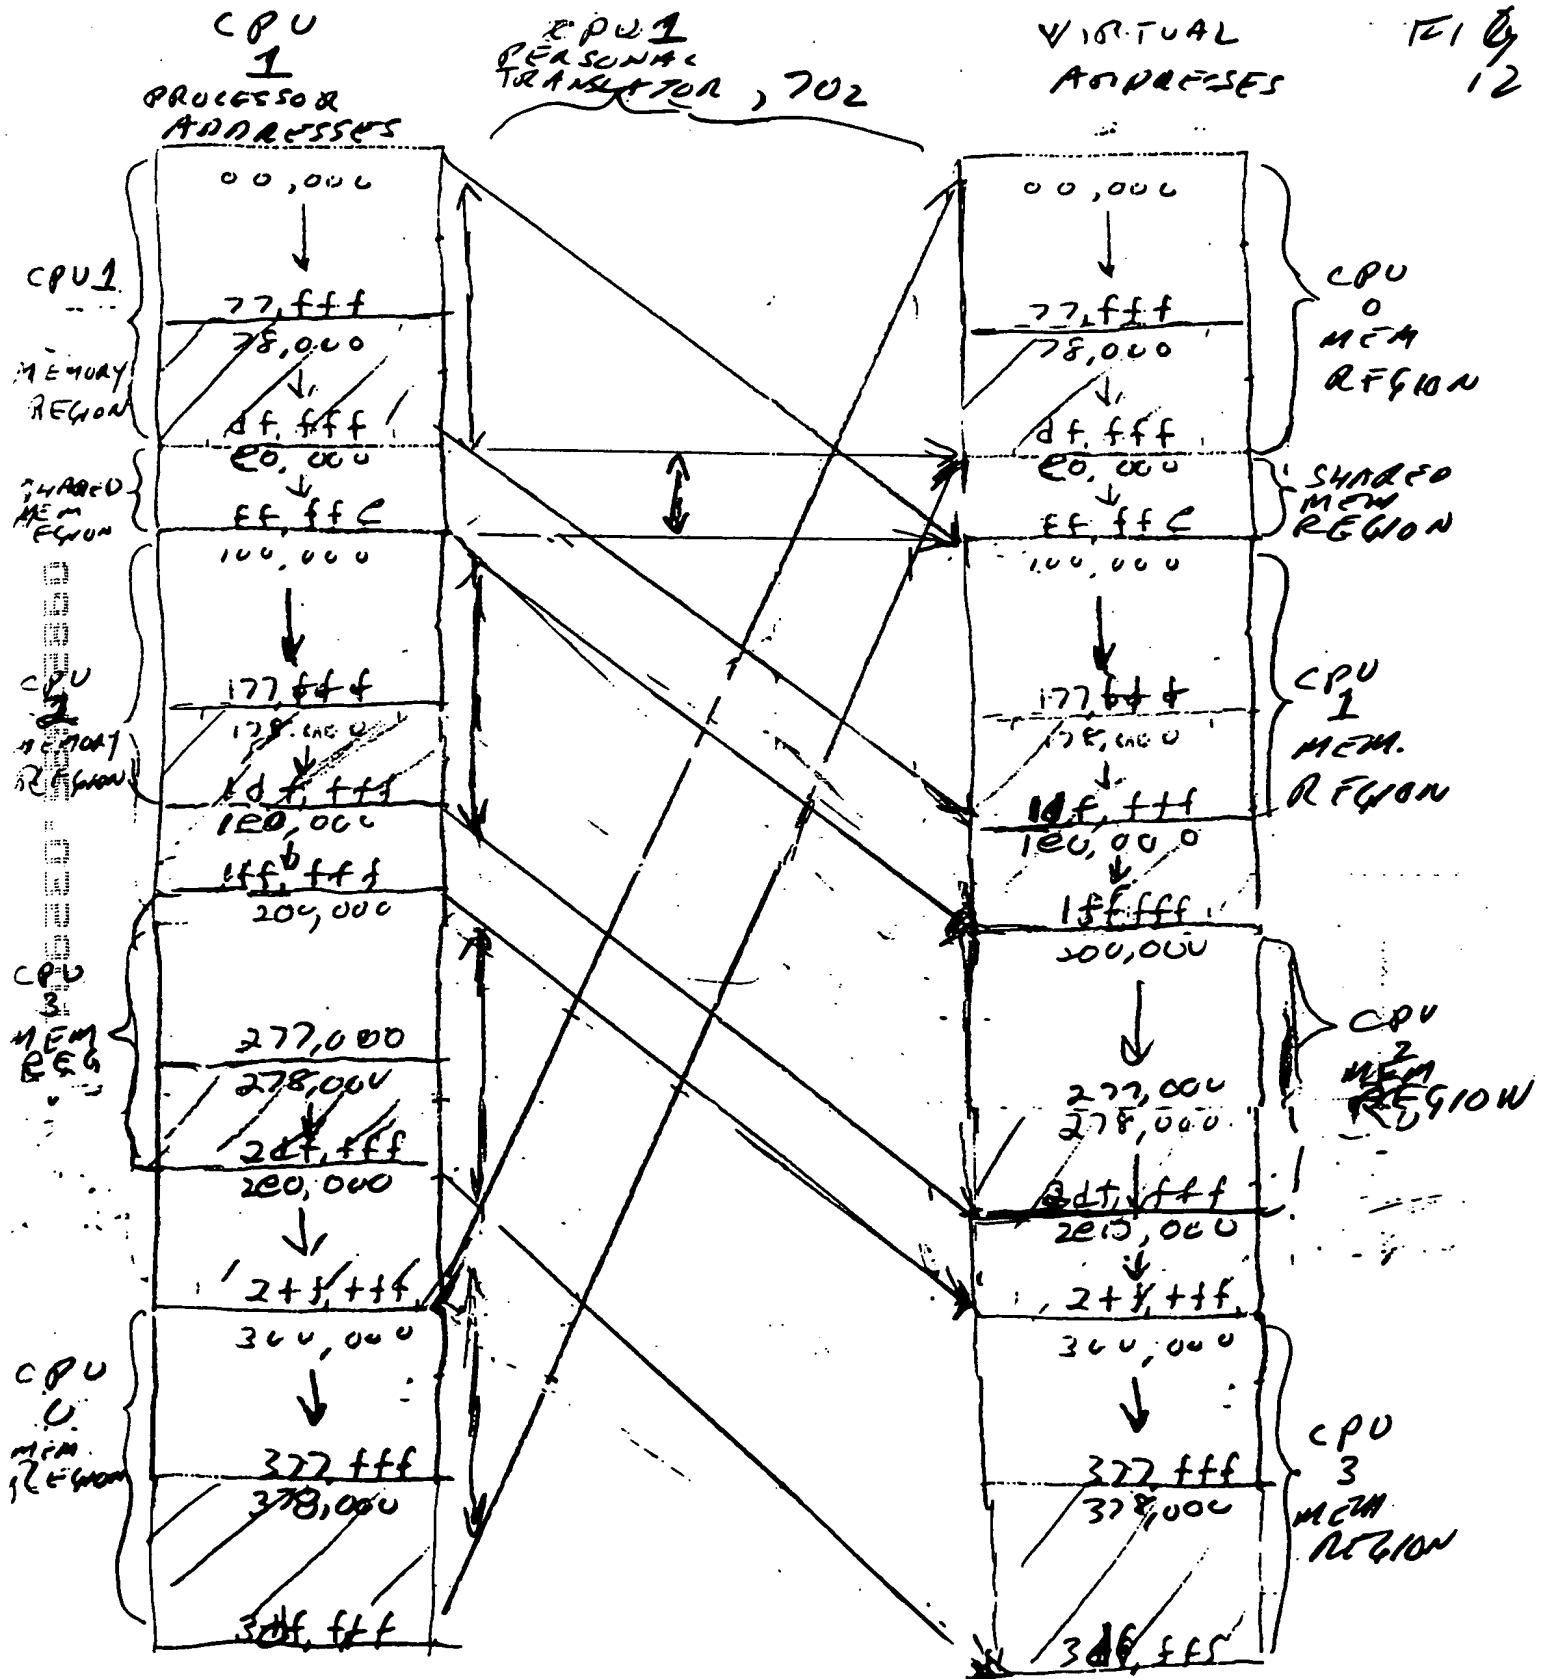 CPU
1
PROCESSOR
ADDRESSES
CPU 1
PERSONAL
TRANSLATOR, 702
VIRTUAL
ADDRESSES
FIG
12
CPU 1
MEMORY
REGION
SHARED
MEM
REGION
CPU
2
MEMORY
REGION
CPU
3
MEM
REG
CPU
0
MEM.
REGION
00,000
77,fff
78,000
df,fff
e0,000
ff,fff
100,000
177,fff
178,000
1df,fff
1e0,000
1ff,fff
200,000
277,000
278,000
2df,fff
2e0,000
2ff,fff
300,000
377,fff
378,000
3df,fff
00,000
77,fff
78,000
df,fff
e0,000
ff,fff
100,000
177,fff
178,000
1df,fff
1e0,000
1ff,fff
200,000
277,000
278,000
2df,fff
2e0,000
2ff,fff
300,000
377,fff
378,000
3df,fff
CPU
0
MEM
REGION
SHARED
MEM
REGION
CPU
1
MEM.
REGION
CPU
2
MEM
REGION
CPU
3
MEM
REGION